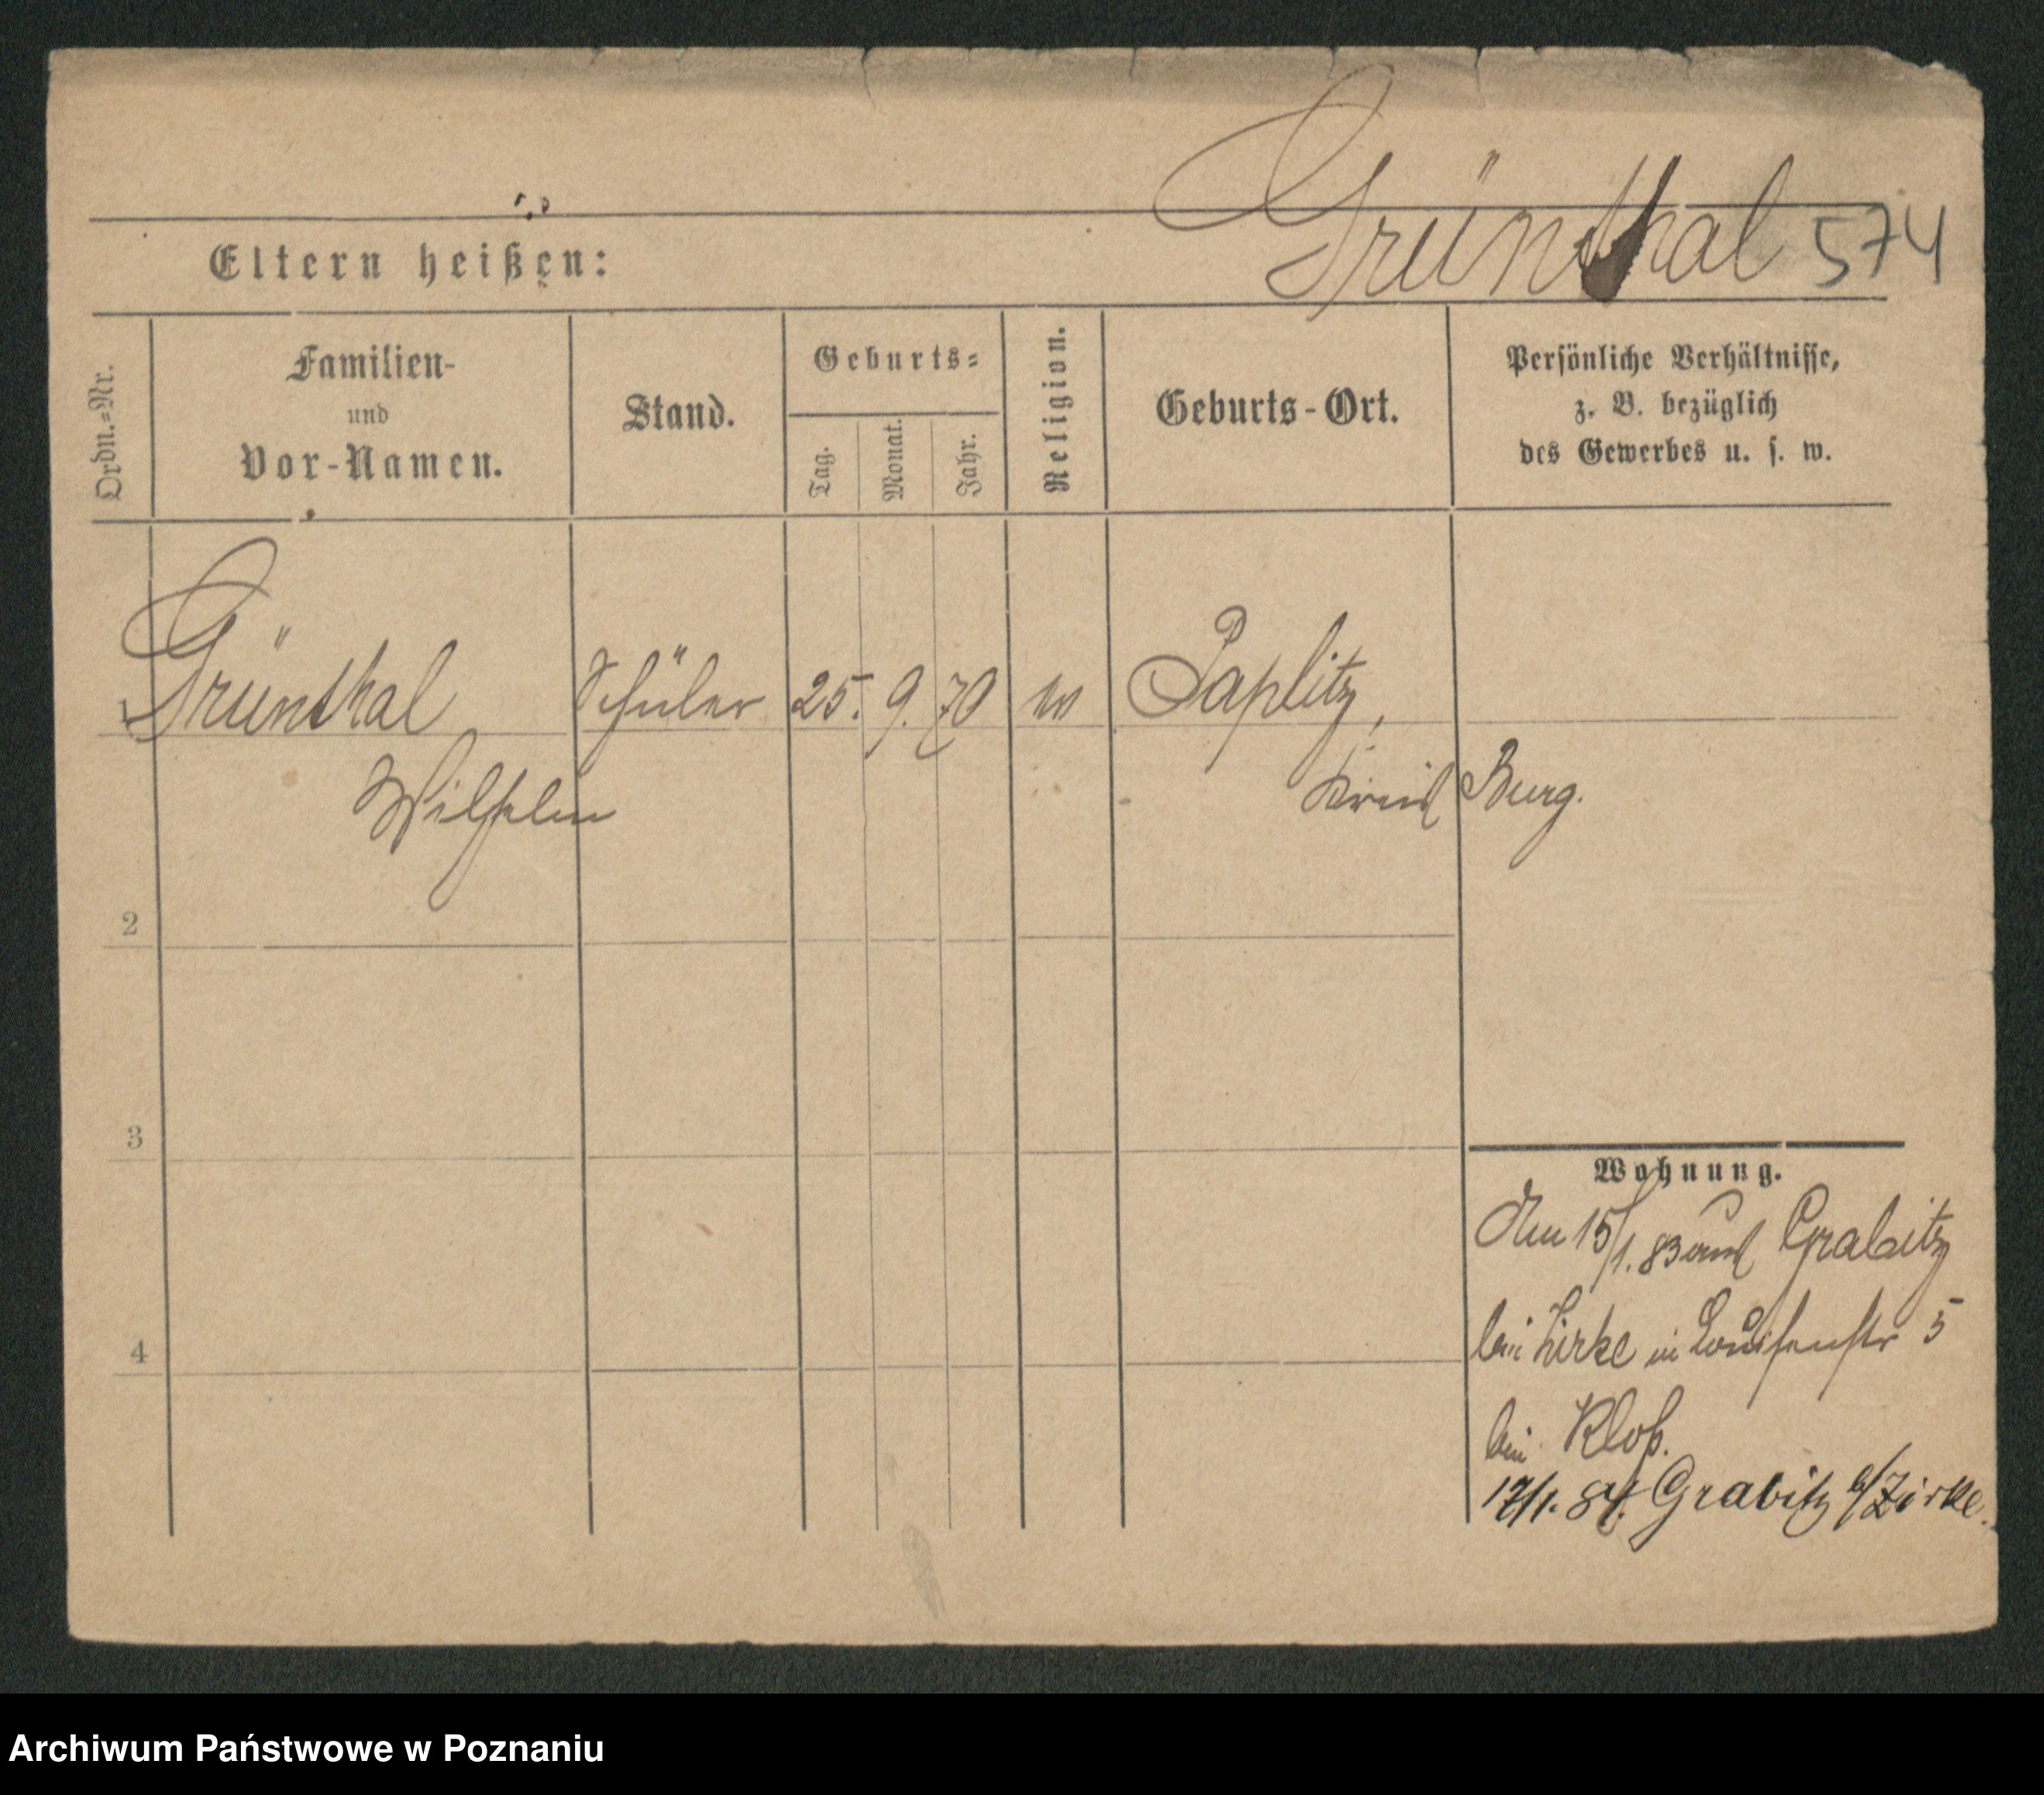 Grünthal 574
Eltern heißen:
Ordn.=Nr.
Familien-
und
Vor-Namen.
Stand.
Geburts=
Tag.
Monat.
Jahr.
Religion.
Geburts-Ort.
Persönliche Verhältnisse,
z. B. bezüglich
des Gewerbes u. s. w.
1 Grünthal Schüler 25. 9. 70 Paplitz,
Wilhelm Kreis Burg.
2
3
4
Wohnung.
Am 15/1. 83 aus Grabitz
bei Zirke in Louisenstr 5
bei Kloß.
17/1. 84. Grabitz b/Zirke.
Archiwum Państwowe w Poznaniu